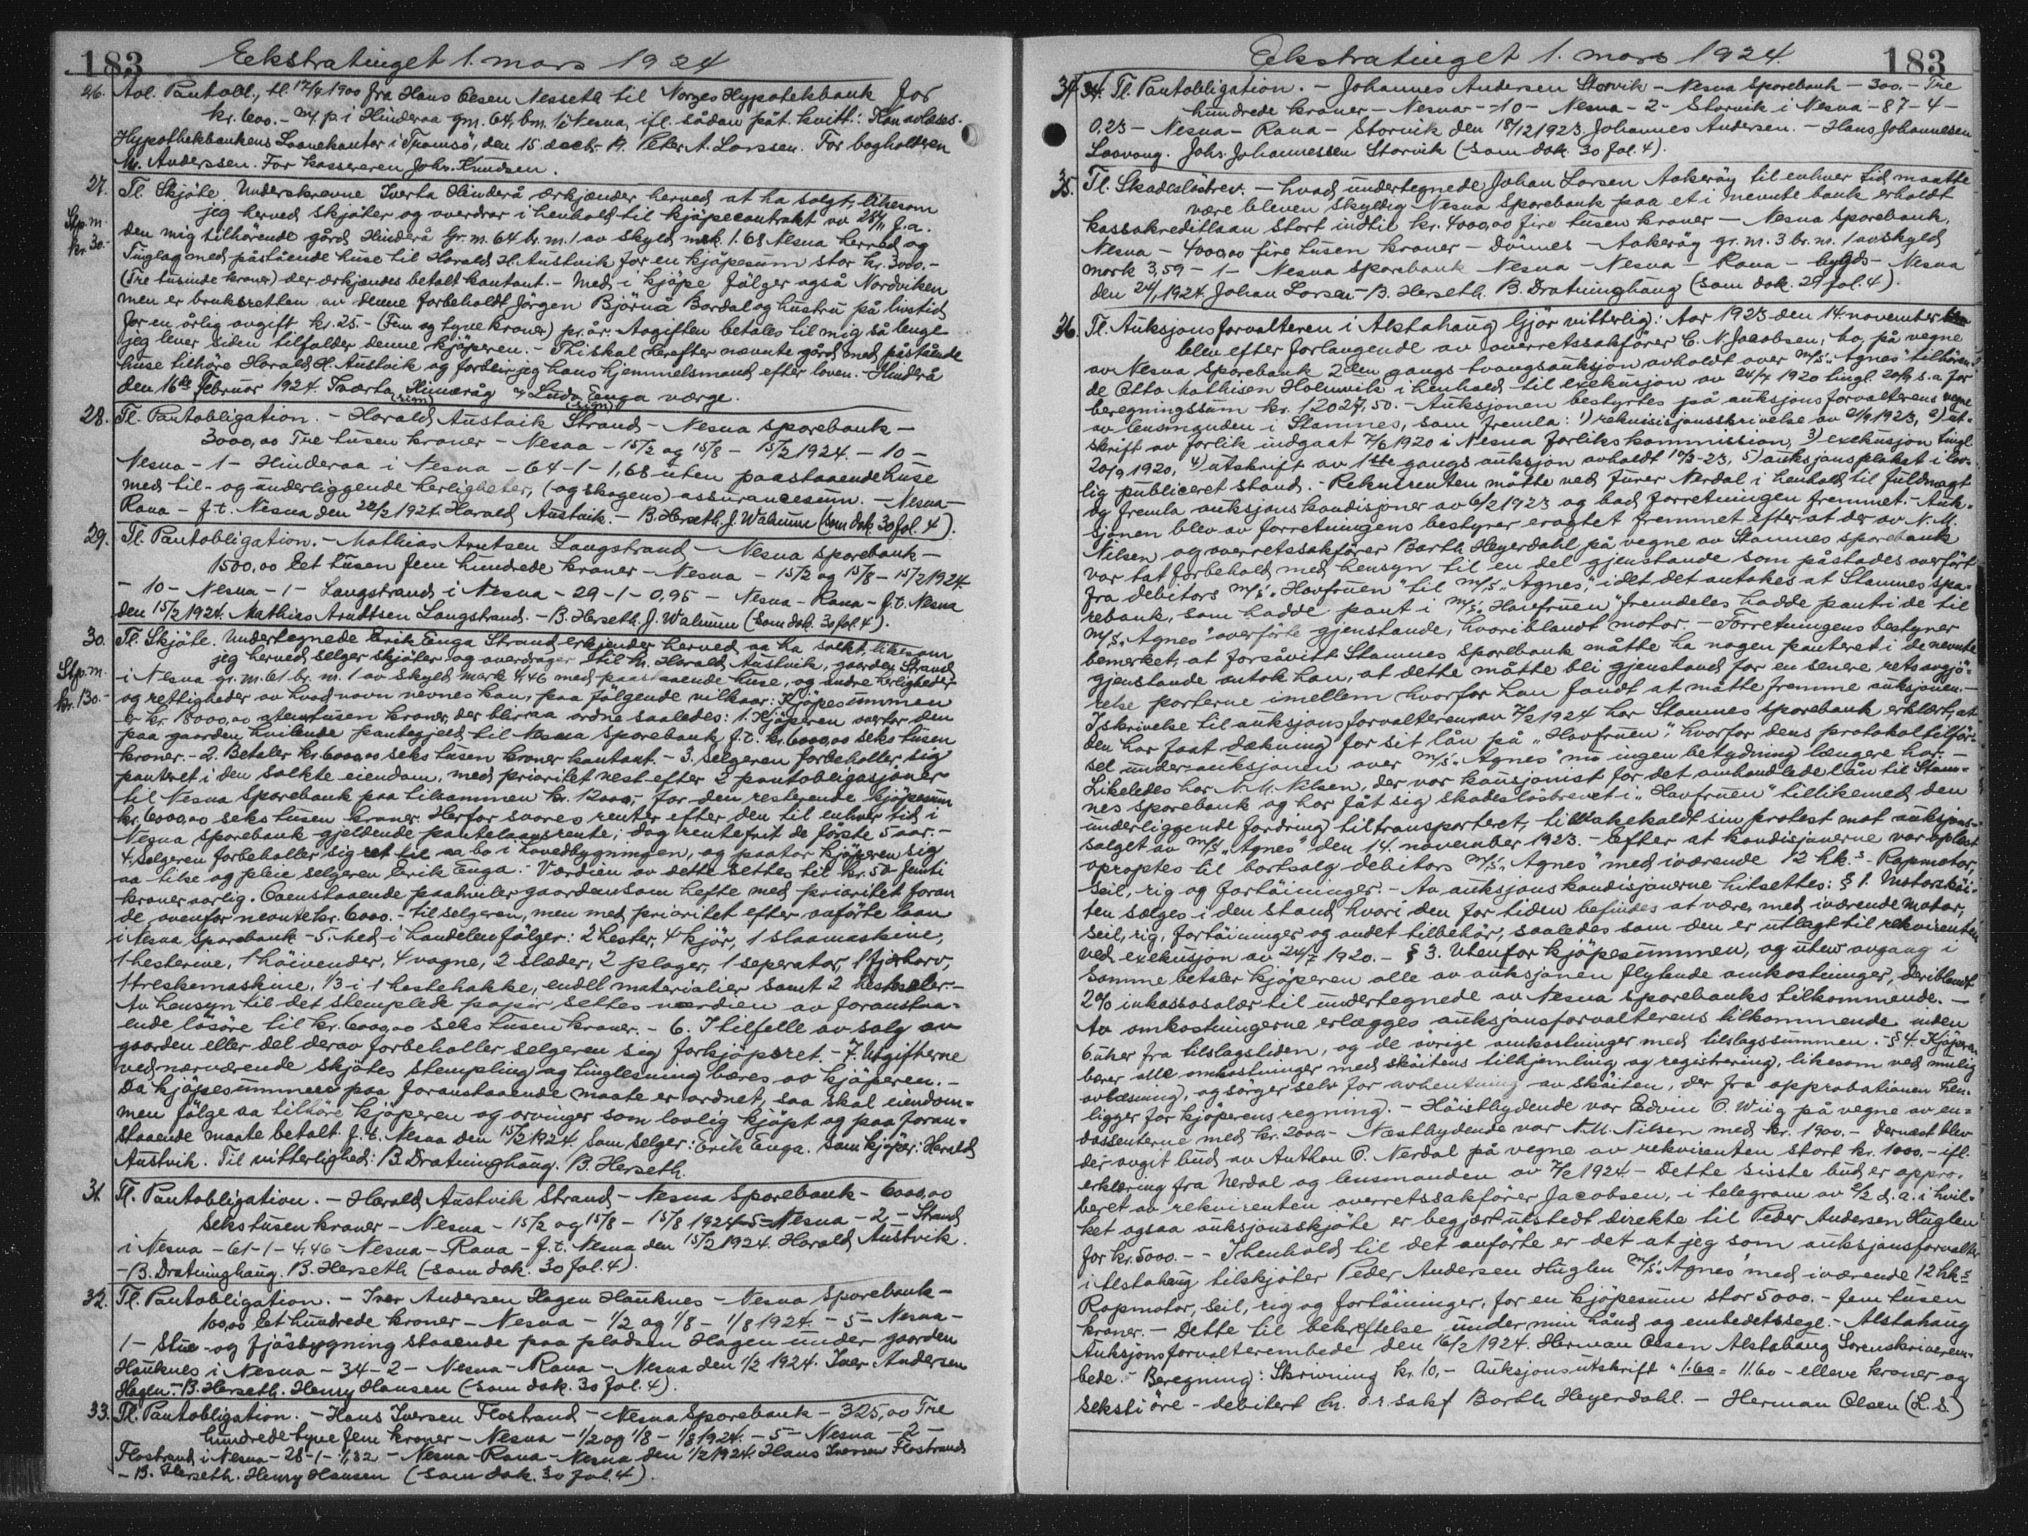 183 Ekstratinget 1. mars 1924
26. Avl. Pantobl., tl. 17/4 1900 fra Hans Olsen Nesseth til Norges Hypotekbank for
kr. 600.- m/ p. i Hinderaa gm. 64, bm. 1 i Nesna, ifl. sådan påt. kvitt: Kan avlæses.
Hypothekbankens Laanekontor i Tromsö, den 15 decbr. Peter A. Larssen. For bogholderen
M. Anderssen. For kassereren Johs. Knudsen.
27. Tl. Skjöte. Underskrevne Iverta Hinderå erkjender herved at ha solgt, likesom
jeg herved skjöter og overdrar i henhold til kjöpecontrakt av 28/11 f.a.
Stp.m. den mig tilhörende gård Hinderå Gr.m. 64 br.m. 1 av skyld mrk. 1.68 Nesna herred og
kr. 30.- Tinglag med påstående huse til Harald H. Austvik for en kjöpesum stor kr. 3000.-
(Tre tusinde kroner) der erkjendes betalt kontant. - Med i kjöpe fölger også Nordviken
men er bruksretten av denne forbeholdt Jörgen Björnå Bardal og hustru på livstid
for en årlig avgift kr. 25.- (Fem og tyve kroner) pr. år. Avgiften betales til mig så lenge
jeg lever siden tilfalder denne kjöperen. - Thi skal herefter nevnte gård med påstående
huse tilhöre Harald H. Austvik og forblir jeg hans hjemmelsmand efter loven. Hinderå
den 16de februar 1924. Iverta Hinderåg (sign) Ludv. Enga (sign) værge.
28. Tl. Pantobligation. - Harald Austvik Strand - Nesna Sparebank -
3000,00 Tre tusen kroner - Nesna - 15/2 og 15/8 - 15/2 1924. - 10 -
Nesna - 1 - Hinderaa i Nesna - 64 - 1 - 1,68 uten paastaaende huse
med til- og underliggende herligheter, (og skogens) assurancesum. - Nesna -
Rana - f.t. Nesna den 22/2 1924. Harald Austvik. - B. Herseth. J. Walnum (som dok. 30 fol. 4).
29. Tl. Pantobligation. - Mathias Arntsen Langstrand - Nesna sparebank -
1500,00 Eet tusen fem hundrede kroner - Nesna - 15/2 og 15/8 - 15/2 1924
- 10 - Nesna - 1 - Langstrand i Nesna - 29 - 1 - 0,95 - Nesna - Rana - f.t. Nesna
den 15/2 1924. Mathias Arndtsen Langstrand. - B. Herseth. J. Walnum (som dok. 30 fol. 4).
30. Tl. Skjöte. Undertegnede Erik Enga Strand erkjender herved aa ha solkt, likesom
jeg herved selger skjöter og overdrager til hr. Harald Austvik, gaarden Strand
Stp.m. i Nesna gr. m. 61 br. m. 1 av skyld mark 4,46 med paastaaende huse, og andre herligheder
kr. 130.- og rettigheder av hvad navn nevnes kan, paa fölgende vilkaar: Kjöpesummen
er kr. 18000,00 atten tusen kroner, der blir aa ordne saaledes: 1. Kjöperen overtar den
paa gaarden hvilende pantegjeld til Nesna Sparebank f.t. kr. 6000,00 seks tusen
kroner. - 2. Betaler kr. 6000,00 seks tusen kroner kontant. - 3. Selgeren forbeholler sig
panteret i den solkte eiendom, med prioritet nest efter 2 pantobligasjoner
til Nesna Sparebank paa tilsammen kr. 12000,-, for den resterende kjöpesum
kr. 6000,00 seks tusen kroner. Herfor svares renter efter den til enhver tid i
Nesna Sparebank gjeldende pantelaansrente; dog rentefrit de förste 5 aar. -
4. Selgeren forbeholler sig ret til aa bo i hovedbygningen, og paatar kjöperen sig
aa tilse og pleie selgeren Erik Enga. Værdien av dette settes til kr. 50 femti
kroner aarlig. Ovenstaaende paahviler gaarden som hefte med prioritet foran
de ovenfor nevnte kr. 6000.- til selgeren, men med prioritet efter anförte laan
i Nesna Sparebank - 5. Med i handelen fölger: 2 hester, 4 kjör, 1 slaamaskine,
1 hesterive, 1 höivender, 4 vogne, 2 slæder, 2 ploger, 1 seperator, 1 fjærharv,
1 treskemaskine, 1/3 i 1 hestehakke, endel materialier samt 2 hestseler. -
Av hensyn til det stemplede papir settes værdien av foranstaa-
ende lösöre til kr. 6000,00 seks tusen kroner. - 6. I tilfelle av salg av
gaarden eller del derav forbeholler selgeren sig forkjöpsret. - 7. Utgifterne
ved nærværende skjötes stempling og tinglesning bæres av kjöperen. -
Da kjöpesummen paa foranstaaende maate er ordnet, saa skal eiendom-
men fölge aa tilhöre kjöperen og arvinger som lovlig kjöpt og paa foran-
staaende maate betalt. f.t. Nesna den 15/2 1924. Som selger: Erik Enga. Som kjöper: Harald
Austvik. Til vitterlighed: B. Dratninghaug. B. Herseth.
31. Tl. Pantobligation. - Harald Austvik Strand - Nesna Sparebank - 6000,00
seks tusen kroner - Nesna - 15/2 og 15/8 - 15/8 1924 - 5 - Nesna - 2 - Strand
i Nesna - 61 - 1 - 4,46 - Nesna - Rana - f.t. Nesna den 15/2 1924. Harald Austvik.
- B. Dratninghaug. B. Herseth (som dok. 30 fol. 4).
32. Tl. Pantobligation. - Iver Andersen Hagen Hauknes - Nesna Sparebank -
100,00 Et hundrede kroner - Nesna - 1/2 og 1/8 - 1/8 1924. - 5 - Nesna -
1 - Stue- og fjösbygning staaende paa pladsen Hagen under gaarden
Hauknes i Nesna - 34 - 2 - Nesna - Rana - Nesna den 1/2 1924. Iver Andersen
Hagen. - B. Herseth. Henry Hansen (som dok. 30 fol. 4).
33. Tl. Pantobligation. - Hans Iversen Flostrand - Nesna Sparebank - 325,00 Tre
hundrede tyve fem kroner - Nesna - 1/2 og 1/8 - 1/8 1924. - 5 - Nesna - 2 -
Flostrand i Nesna - 28 - 1 - 1,32 - Nesna - Rana - Nesna den 1/2 1924. Hans Iversen Flostrand
- B. Herseth. Henry Hansen (som dok. 30 fol. 4).
Ekstratinget 1. mars 1924. 183
34. Tl. Pantobligation. - Johannes Andersen Storvik - Nesna Sparebank - 300. - Tre
hundrede kroner - Nesna - 10 - Nesna - 2 - Storvik i Nesna - 87 - 4 -
0.23 - Nesna - Rana - Storvik den 18/12 1923. Johannes Andersen. - Hans Johannessen
Laavong. Johs. Johannessen Storvik (som dok. 30 fol. 4).
35. Tl. Skadeslösbrev. - hvad undertegnede Johan Larsen Aakeröy til enhver tid maatte
være bleven skyldig Nesna Sparebank paa et i nevnte bank erholdt
kassakreditlaan stort indtil kr. 4000,00 fire tusen kroner - Nesna Sparebank,
Nesna - 4000,00 fire tusen kroner - Dönnes - Aakeröy gr. m. 3 br. m. 1 av skyld
mark 3,59 - 1 - Nesna Sparebank Nesna - Nesna - Rana - Nesna
den 24/1 1924. Johan Larsen - B. Herseth. B. Dratninghaug (som dok. 29 fol. 4).
36. Tl. Auksjonsforvalteren i Alstahaug Gjör vitterlig: Aar 1923 den 14 november
blev efter forlangende av overretssakförer C. N. Jacobsen, bo, på vegne
av Nesna Sparebank 2den gangs tvangsauksjon avholdt over m/s. "Agnes" tilhören-
de Otto Mathisen Holmvik i henhold til exekusjon av 24/7 1920 tingl. 20/9 s.a. for
beregningssum kr. 12027,50. - Auksjonen bestyrtes på auksjonsforvalterens vegne
av lensmanden i Stamnes, som fremla: 1) rekvisisjonsskrivelse av 2/9 1923, 2) ut-
skrift av forlik indgaat 7/6 1920 i Nesna forlikskommission, 3) exekusjon tingl.
20/9 1920, 4) utskrift av 1ste gangs auksjon avholdt 10/3-23, 5) auksjonsplakat i lov-
lig publiceret stand. - Rekvirenten måtte ved furer Nerdal i henhold til fuldmagt
og fremla auksjonskondisjoner av 6/2 1923 og bad forretningen fremmet. - Auk-
sjonen blev av forretningens bestyrer eragtet fremmet efter at der av N. M.
Nilsen og overretssakförer Barth Heyerdahl på vegne av Stamnes sparebank
var tat forbehold med hensyn til en del gjenstande som påstades overfört
fra debitors m/s. "Havfruen" til m/s. "Agnes", idet det antokes at Stamnes spa-
rebank, som hadde pant i m/s. "Havfruen" fremdeles hadde pant i de til
m/s. "Agnes" overförte gjenstande, hvoriblandt motor. - Forretningens bestyrer
bemerket, at forsåvitt Stamnes sparebank måtte ha nogen panteret i de nevnte
gjenstande antok han, at dette måtte bli gjenstand for en senere retsavgjö-
relse parterne imellem hvorfor han fandt at måtte fremme auksjonen. -
I skrivelse til auksjonsforvalteren av 7/2 1924 har Stamnes sparebank erklært, at
den har faat dækning for sit lån på "Havfruen", hvorfor dens protokoltilför-
sel under auksjonen over m/s. "Agnes" nu ingen betydning længere har. -
Likeledes har N. M. Nilsen, der var kausjonist for det omhandlede lån til Stam-
nes sparebank og har fåt sig skadeslösbrevet i "Havfruen" tillikemed den
underliggende fordring tiltransporteret, tilbakekaldt sin protest mot auksjons-
salget av m/s. "Agnes" den 14. november 1923. - Efter at kondisjonerne var oplæst
opraptes til bortsalg debitors m/s. "Agnes" med iværende 12 hk.s Rapmotor,
seil, rig og fortöininger. - Av auksjonskondisjonerne hitsettes: § 1. Motorsköi-
ten sælges i den stand hvori den for tiden befindes at være, med iværende motor,
seil, rig, fortöininger og andet tilbehör, saaledes som den er utlagt til rekvirenten
ved exekusjon av 24/7 1920. - § 3. Utenfor kjöpesummen, og uten avgang i
samme betaler kjöperen alle av auksjonen flytende omkostninger, deriblandt
2% inkassosalær til undertegnede av Nesna Sparebanks tilkommende. -
Av omkostningerne erlægges auksjonsforvalterens tilkommende inden
6 uker fra tilslagstiden, og de övrige omkostninger med tilslagssummen. - § 4. Kjöperen
bærer alle omkostninger med sköitens tilhjemling og registrering, likesom ved mulig
avlæsning, og sörger selv for avhentning av sköiten, der fra approbationen hen-
ligger for kjöperens regning. - Höistbydende var Edvin O. Wiig på vegne av en-
dossenterne med kr. 2000.- Næstbydende var N. M. Nilsen med kr. 1900. - dernæst blev
der avgit bud av Anthon O. Nerdal på vegne av rekvirenten stort kr. 1000.- ifl.
erklæring fra Nerdal og lensmanden av 7/2 1924 - Dette sisste bud er appro-
beret av rekvirenten overretssakförer Jacobsen, i telegram av 2/2 d.a. i hvil-
ket ogsaa auksjonsskjöte er begjært utstedt direkte til Peder Andersen Huglen
for kr. 5000. - - I henhold til det anförte er det at jeg som auksjonsforvalter
i Alstahaug tilskjöter Peder Andersen Huglen m/s. "Agnes" med iværende 12 hk.s
Rapmotor, seil, rig og fortöininger, for en kjöpesum stor 5000. - fem tusen
kroner. - Dette til bekreftelse under min hånd og embedetssegl. - Alstahaug
Auksjonsforvalterembede den 16/2 1924. Herman Olsen Alstahaug Sorenskriverem-
bede. - Beregning: Skrivning kr. 10,- Auksjonsutskrift " 1.60 = 11.60 - elleve kroner og
seksti öre - debitert hr. o.r.sakf. Barth Heyerdahl. - Herman Olsen (L.S.)